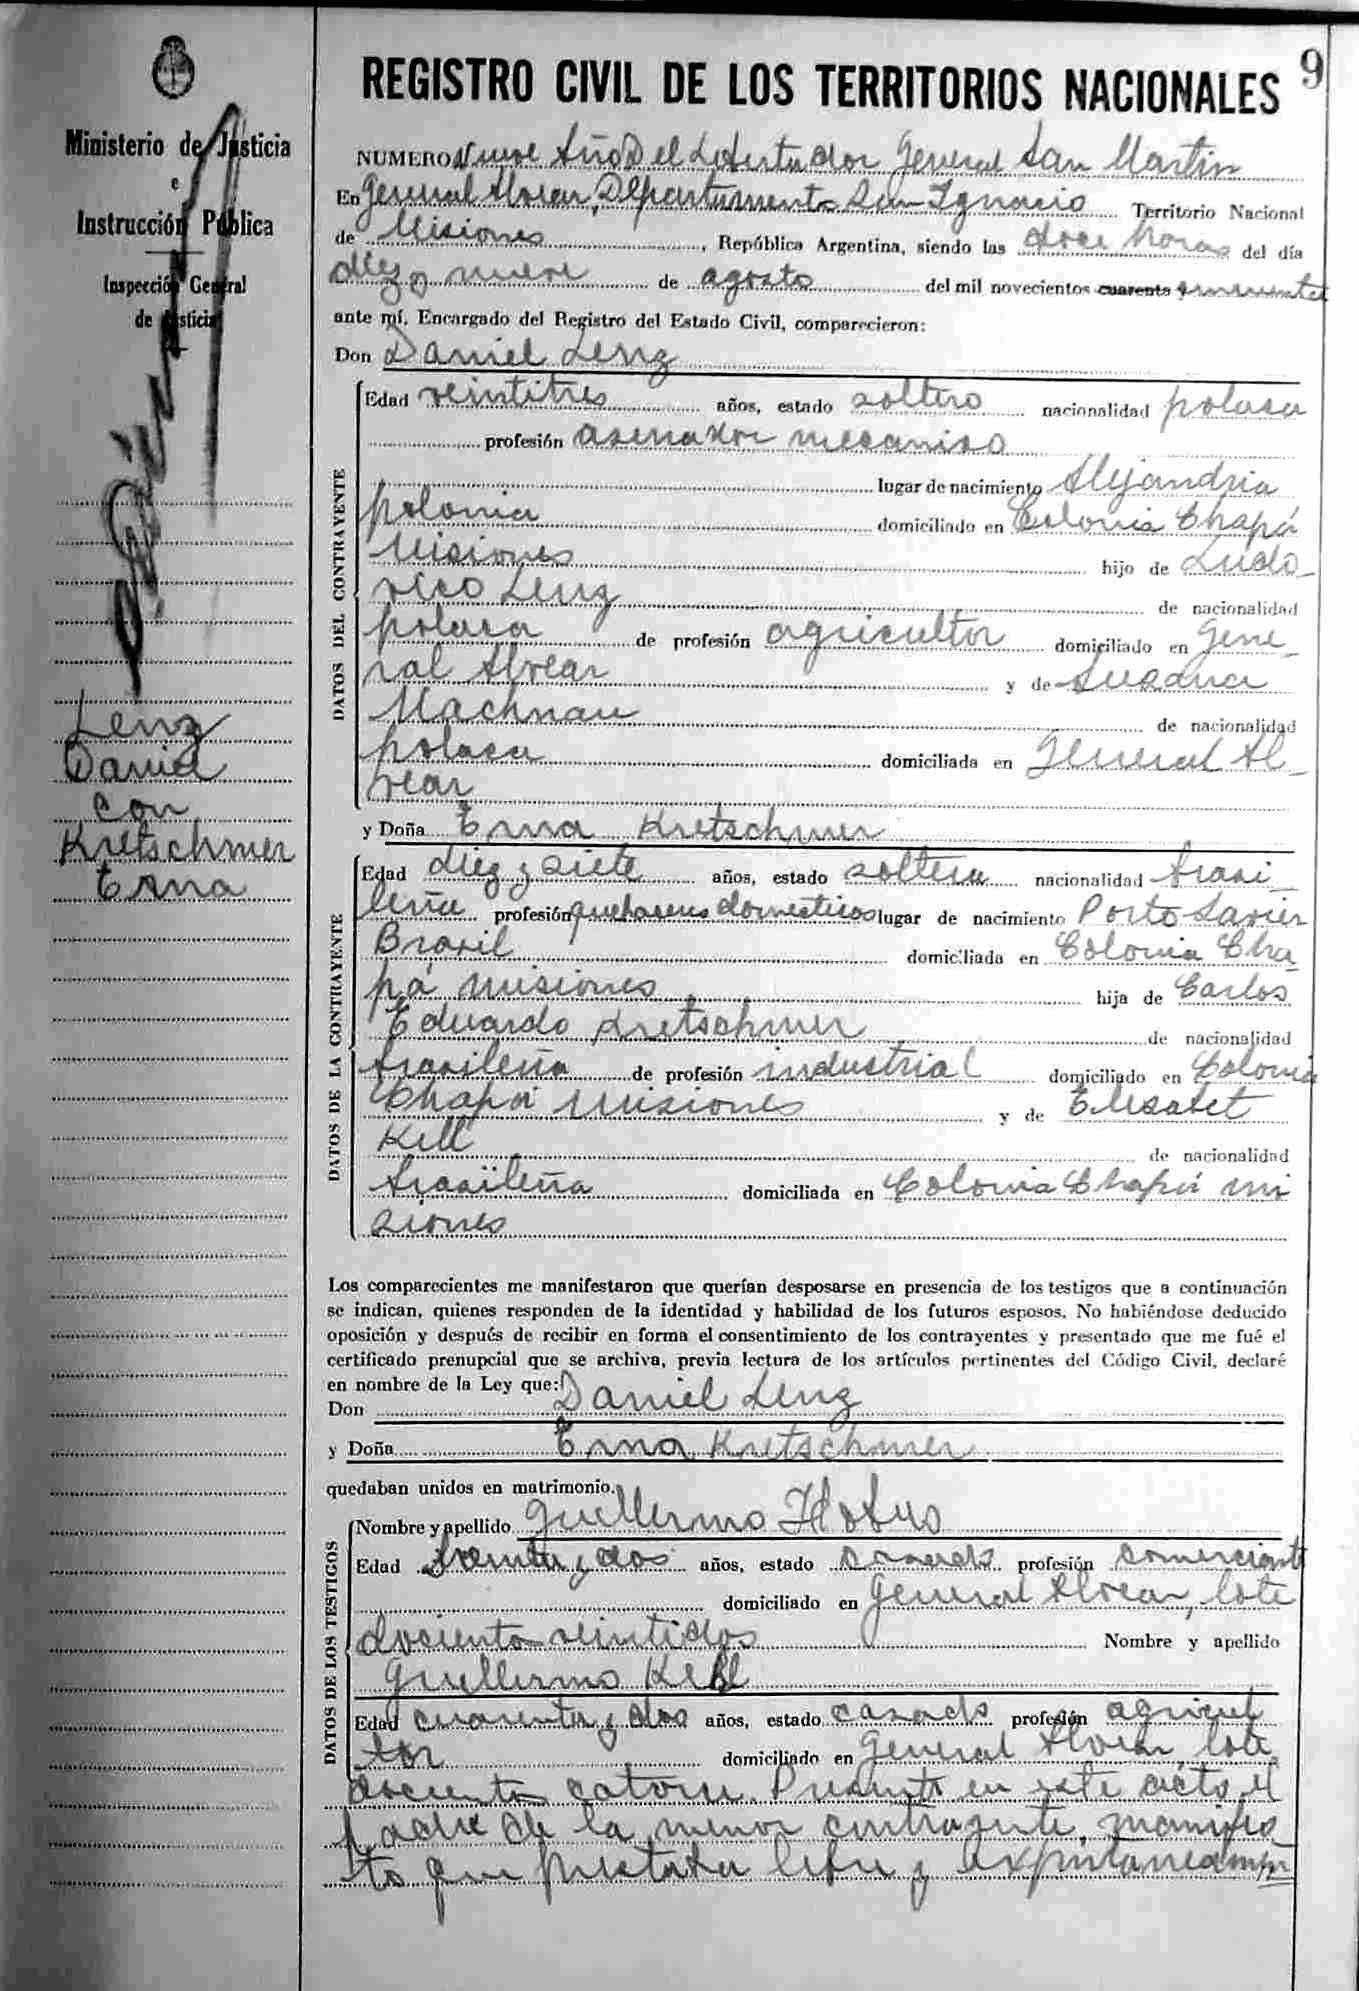 9
Ministerio de Justicia
e
Instrucción Pública
Inspección General
de Justicia
Lenz
Daniel
con
Kretschmer
Erna
REGISTRO CIVIL DE LOS TERRITORIOS NACIONALES
NUMERO Nueve Año Del Libertador General San Martin
En General Alvear, Departamento San Ignacio Territorio Nacional
de Misiones, República Argentina, siendo las doce horas del día
diez y nueve de agosto del mil novecientos cuarenta y cincuenta
ante mí, Encargado del Registro del Estado Civil, comparecieron:
Don Daniel Lenz
DATOS DEL CONTRAYENTE
Edad veintitres años, estado soltero nacionalidad polaca
profesión aserrador mecanico
lugar de nacimiento Alejandria
polonia domiciliado en Colonia Chapá
Misiones hijo de Ludo-
vico Lenz de nacionalidad
polaca de profesión agricultor domiciliado en Gene-
ral Alvear y de Susana
Machnau de nacionalidad
polaca domiciliada en General Al-
vear
y Doña Erna Kretschmer
DATOS DE LA CONTRAYENTE
Edad diez y siete años, estado soltera nacionalidad brasi-
leña profesión quehaceres domesticos lugar de nacimiento Porto Lavier
Brasil domiciliada en Colonia Cha-
pá misiones hija de Carlos
Eduardo Kretschmer de nacionalidad
brasileña de profesión industrial domiciliado en Colonia
Chapá Misiones y de Elisabet
Kell de nacionalidad
brasileña domiciliada en Colonia Chapá mi
siones
Los comparecientes me manifestaron que querían desposarse en presencia de los testigos que a continuación
se indican, quienes responden de la identidad y habilidad de los futuros esposos. No habiéndose deducido
oposición y después de recibir en forma el consentimiento de los contrayentes y presentado que me fué el
certificado prenupcial que se archiva, previa lectura de los artículos pertinentes del Código Civil, declaré
en nombre de la Ley que:
Don Daniel Lenz
y Doña Erna Kretschmer
quedaban unidos en matrimonio.
DATOS DE LOS TESTIGOS
Nombre y apellido Guillermo Hobus
Edad treinta y dos años, estado casado profesión comerciante
domiciliado en General Alvear, lote
dociento veintidos Nombre y apellido
Guillermo Kell
Edad cuarenta y dos años, estado casado profesión agricul
tor domiciliado en General Alvear, lote
dociento catorce. Presente en este acto el
padre de la menor contrayente, manifes-
to que prestaba libre y expontaneamen